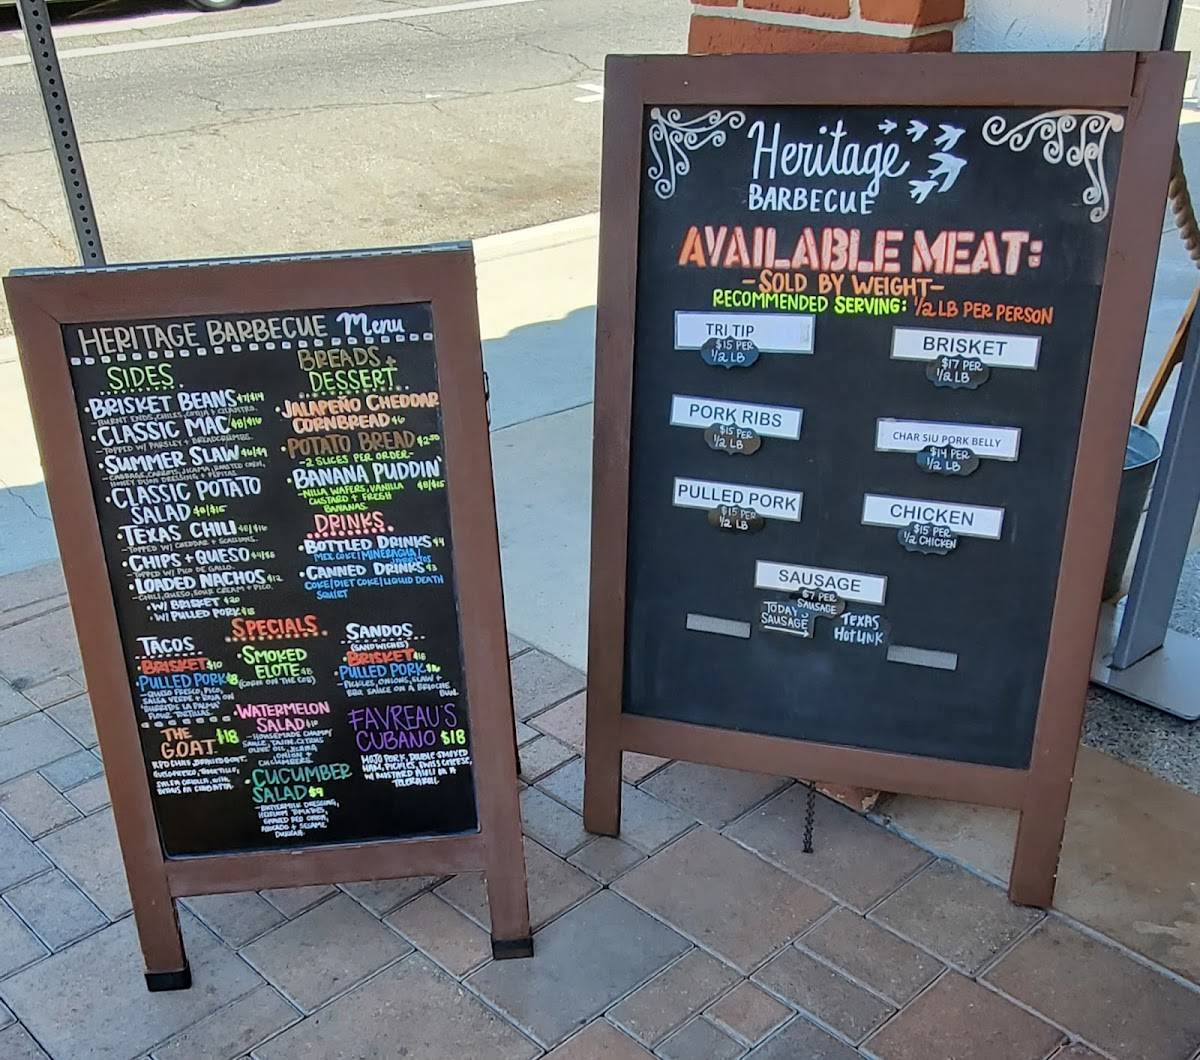 HERITAGE BARBECUE Menu
SIDES
• BRISKET BEANS $7/$14
BURNT ENDS, CHILES, COTIJA + CILANTRO.
• CLASSIC MAC $8/$16
- TOPPED W/ PARSLEY + BREADCRUMBS.
• SUMMER SLAW
CABBAGE, CARROTS, JICAMA, ROASTED CORN,
HONEY DIJON DRESSING + PEPITAS
• CLASSIC POTATO
SALAD $8/$15
• TEXAS CHILI $8/$16
- TOPPED W/ CHEDDAR + SCALLIONS.
• CHIPS + QUESO
- TOPPED W/ PICO DE GALLO.
• LOADED NACHOS $12
- CHILI, QUESO, SOUR CREAM + PICO.
• W/ BRISKET $20
• W/ PULLED PORK $18
BREADS +
DESSERT
• JALAPEÑO CHEDDAR
CORNBREAD $6
• POTATO BREAD $2.50
- 2 SLICES PER ORDER. -
• BANANA PUDDIN'
- NILLA WAFERS, VANILLA $8/$15
CUSTARD + FRESH
BANANAS
DRINKS
• BOTTLED DRINKS $4
MEX COKE/MINERAGUA/
• CANNED DRINKS $3
COKE/DIET COKE/LIQUID DEATH
SQUIRT
SPECIALS
TACOS
• BRISKET $10
• PULLED PORK $8
- QUESO FRESCO, PICO,
SALSA VERDE + RAJA ON
"BURRITOS LA PALMA"
FLOUR TORTILLAS -
THE
GOAT $18
• SMOKED
ELOTE $8
(CORN ON THE COB)
• WATERMELON
SALAD $10
- HOUSEMADE CHAMOY
SAUCE, TAJIN, CITRUS
OLIVE OIL, JICAMA,
ONION +
CUCUMBERS
• CUCUMBER
SALAD $9
- BUTTERMILK DRESSING,
HEIRLOOM TOMATOES,
SHAVED RED ONION,
AVOCADO + SESAME
DUKKAH.
SANDOS
(SANDWICHES)
• BRISKET $16
• PULLED PORK
- PICKLES, ONIONS, SLAW +
BBQ SAUCE ON A BRIOCHE
BUN.
FAVREAU'S
CUBANO $18
MOJO PORK, DOUBLE SMOKED
HAM, PICKLES, SWISS CHEESE,
W/ MUSTARD AIOLI ON A
TELERA ROLL
Heritage
BARBECUE
AVAILABLE MEAT:
- SOLD BY WEIGHT -
RECOMMENDED SERVING: 1/2 LB PER PERSON
TRI TIP
$15 PER
1/2 LB
BRISKET
$17 PER
1/2 LB
PORK RIBS
$15 PER
1/2 LB
CHAR SIU PORK BELLY
$14 PER
1/2 LB
PULLED PORK
$15 PER
1/2 LB
CHICKEN
$15 PER
1/2 CHICKEN
SAUSAGE
$7 PER
SAUSAGE
TODAY'S
SAUSAGE
TEXAS
HOT LINK